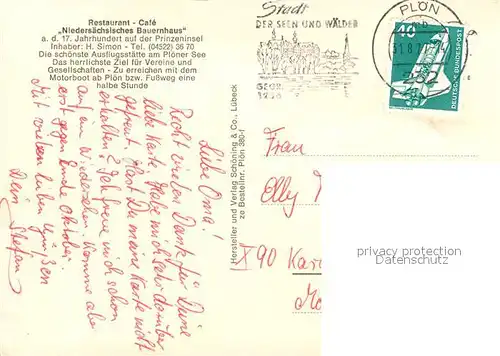 Restaurant - Café
„Niedersächsisches Bauernhaus"
a. d. 17. Jahrhundert auf der Prinzeninsel
Inhaber: H. Simon - Tel. (04522) 36 70
Die schönste Ausflugsstätte am Plöner See
Das herrlichste Ziel für Vereine und
Gesellschaften - Zu erreichen mit dem
Motorboot ab Plön bzw. Fußweg eine
halbe Stunde
Liebe Oma!
Recht vielen Dank für Deine
liebe Karte. Habe mich sehr darüber
gefreut. Hast Du meine Karte nicht
erhalten? Ich freue mich schon
auf ein Wiedersehen. Komme aber
erst gegen Ende Oktober.
Mit vielen lieben Grüßen
Dein Stefan
Hersteller und Verlag Schöning & Co., Lübeck
zu Bestellnr. Plön 380-1
Stadt
DER SEEN UND WÄLDER
1236
PLÖN
40
DEUTSCHE BUNDESPOST
Frau
Elly
X90
privacy protection
Datenschutz